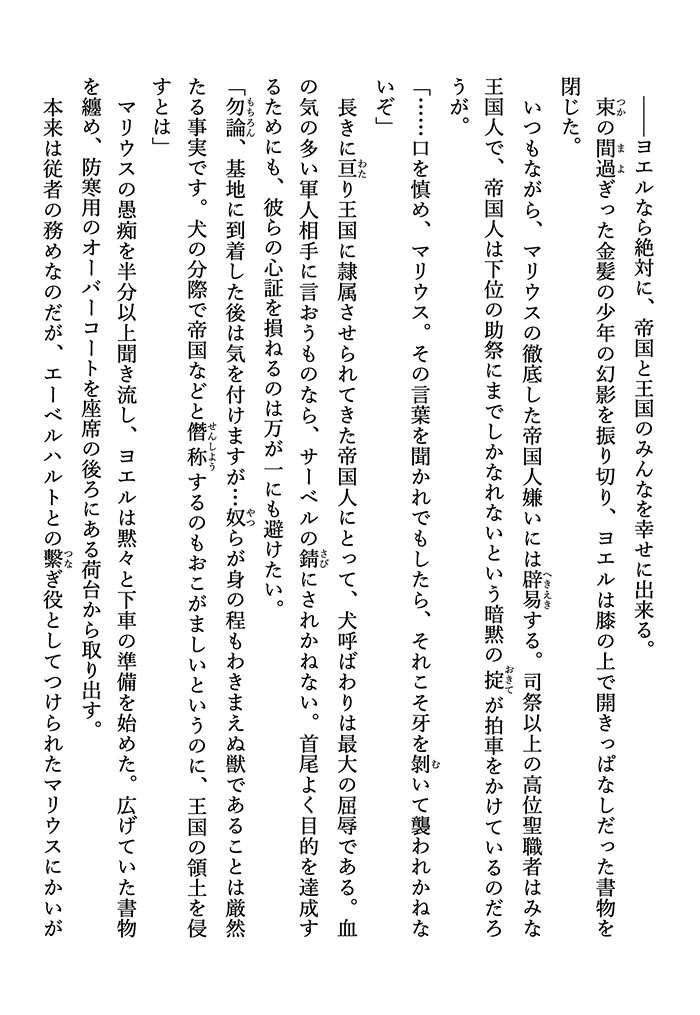 ――ヨエルなら絶対に、帝国と王国のみんなを幸せに出来る。
束の間過ぎった金髪の少年の幻影を振り切り、ヨエルは膝の上で開きっぱなしだった書物を
閉じた。
いつもながら、マリウスの徹底した帝国人嫌いには辟易する。司祭以上の高位聖職者はみな
王国人で、帝国人は下位の助祭にまでしかなれないという暗黙の掟が拍車をかけているのだろ
うが。
「……口を慎め、マリウス。その言葉を聞かれでもしたら、それこそ牙を剝いて襲われかねな
いぞ」
長きに亘り王国に隷属させられてきた帝国人にとって、犬呼ばわりは最大の屈辱である。血
の気の多い軍人相手に言おうものなら、サーベルの錆にされかねない。首尾よく目的を達成す
るためにも、彼らの心証を損ねるのは万が一にも避けたい。
「勿論、基地に到着した後は気を付けますが…奴らが身の程もわきまえぬ獣であることは厳然
たる事実です。犬の分際で帝国などと僭称するのもおこがましいというのに、王国の領土を侵
すとは」
マリウスの愚痴を半分以上聞き流し、ヨエルは黙々と下車の準備を始めた。広げていた書物
を纏め、防寒用のオーバーコートを座席の後ろにある荷台から取り出す。
本来は従者の務めなのだが、エーベルハルトとの繋ぎ役としてつけられたマリウスにかいが